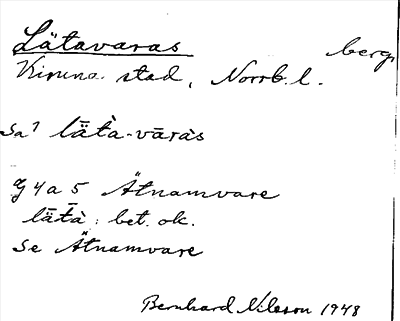 Lätavaras berg
Kiruna stad, Norrb. l.
Sa? lā̈tà-vāràs
J 4 a 5 Ätnamvare
lā̈t̄à: bet. ok.
Se Ätnamvare
Bernhard Nilsson 1948